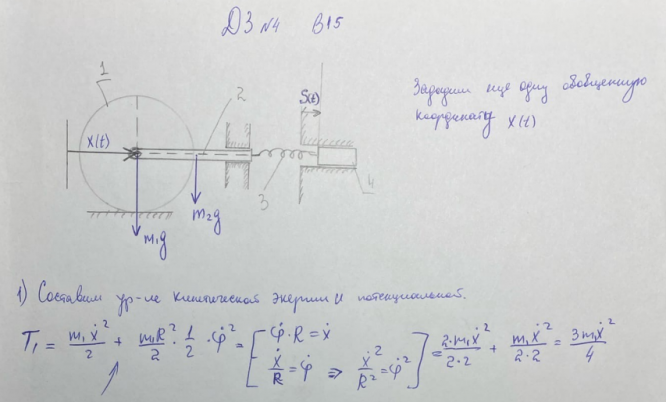 ДЗ №4 В15
1
2
S(t)
Зададим еще одну обобщенную
координату X(t)
X(t)
3
4
m₂g
m₁g
1) Составим ур-ие кинетической энергии и потенциальной.
T₁ = m₁ẋ²/2 + m₁R²/2 · 1/2 · φ̇² = [φ̇·R = ẋ; ẋ/R = φ̇ ⇒ ẋ²/R² = φ̇²] = 2·m₁ẋ²/2·2 + m₁ẋ²/2·2 = 3m₁ẋ²/4